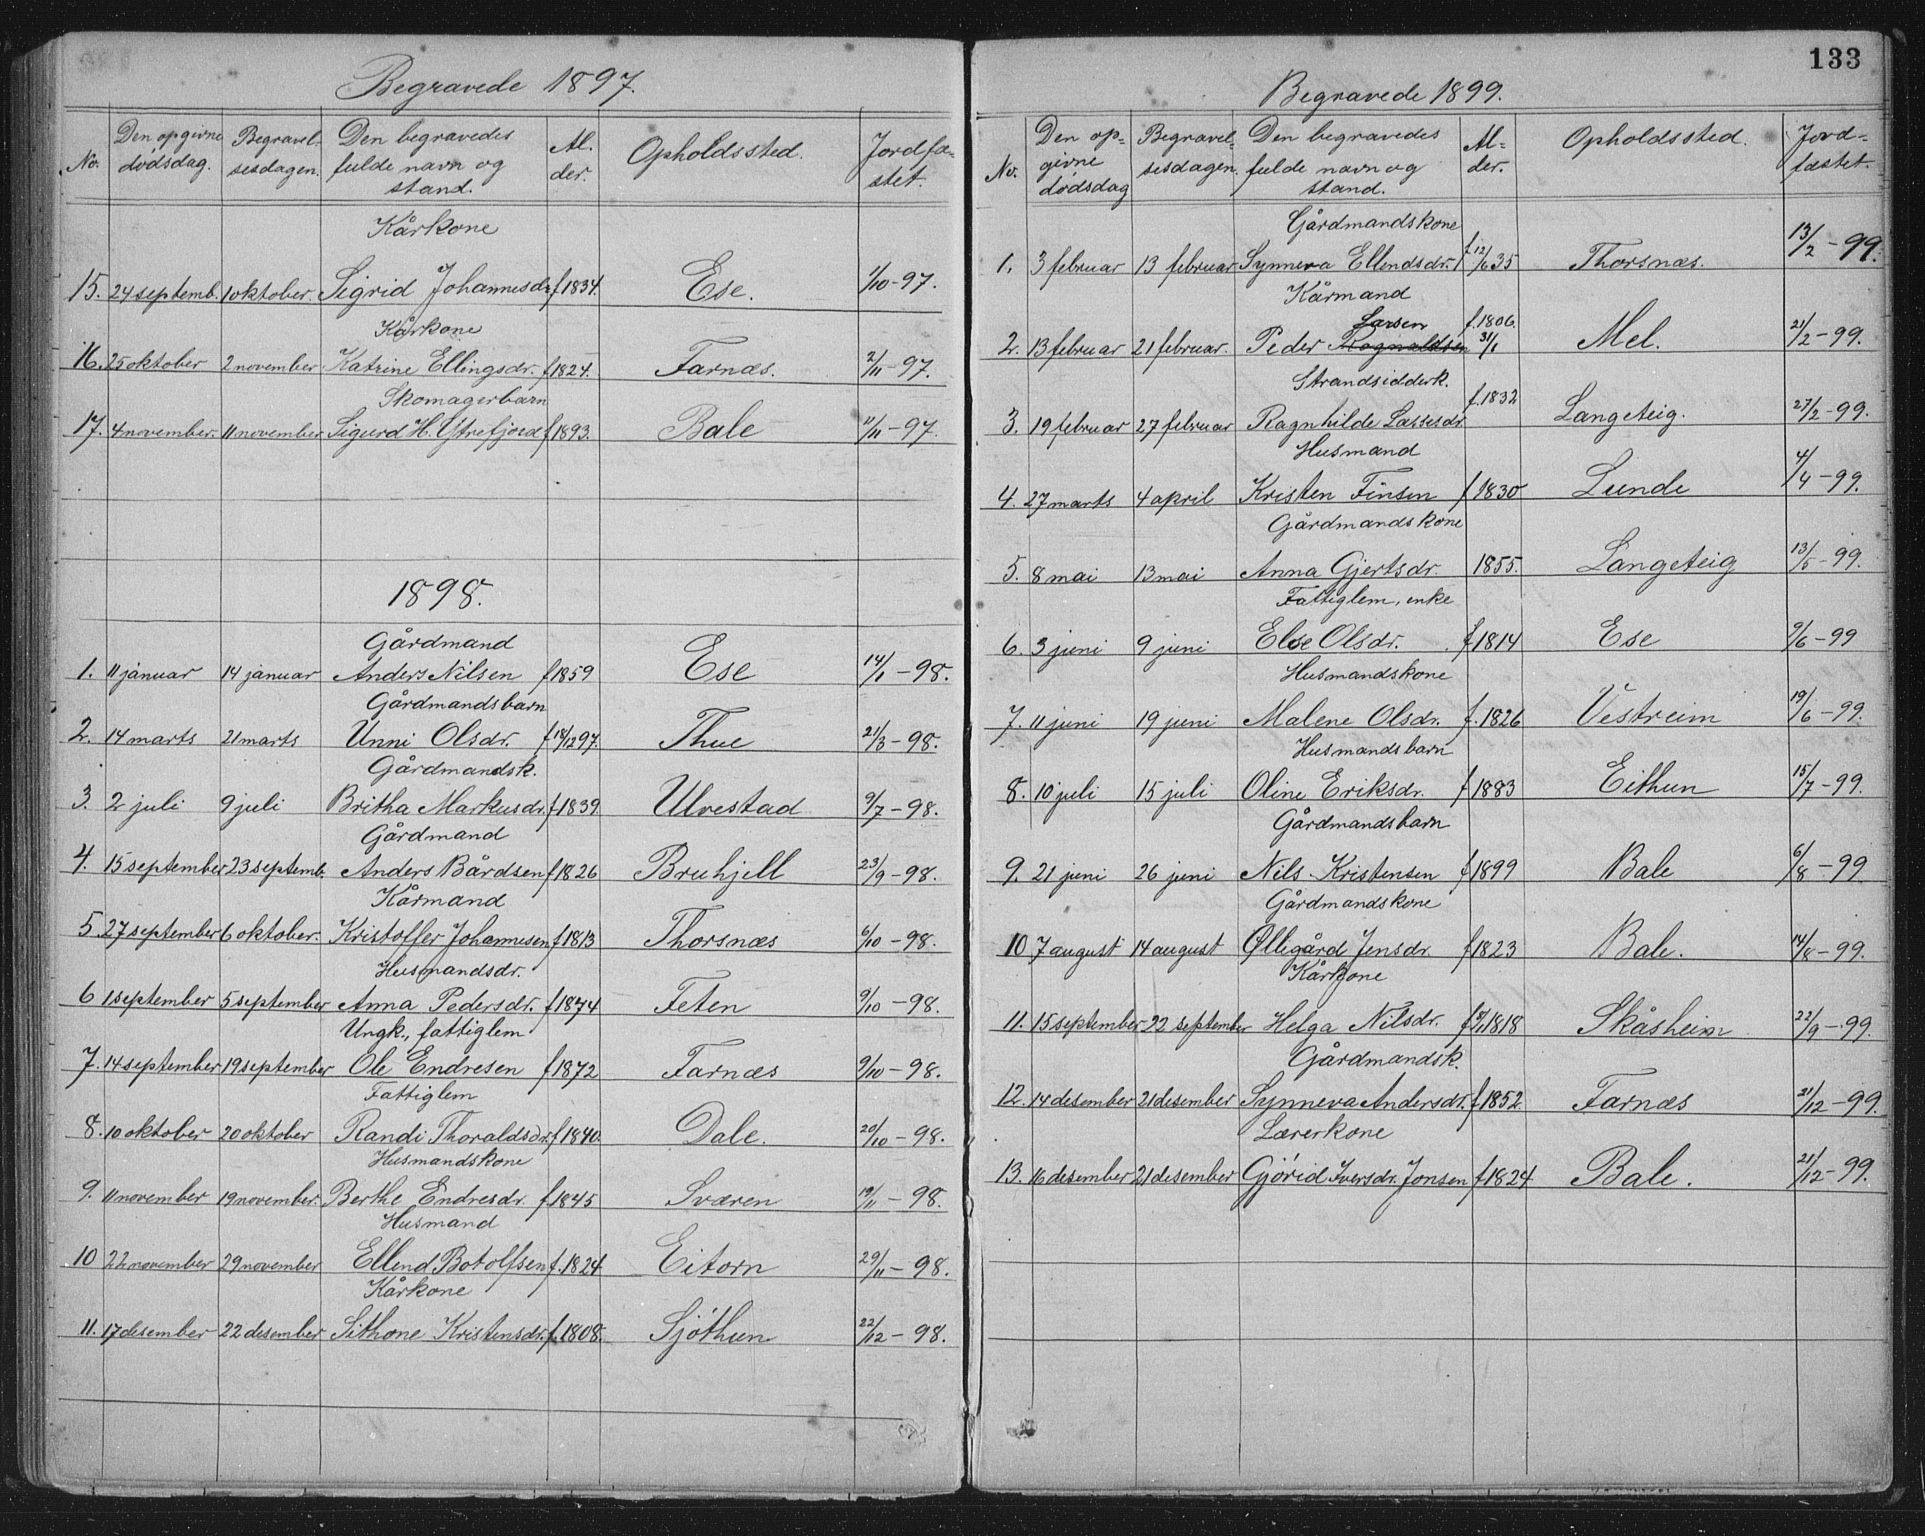 Begravede 1897.
No. Den opgivne dødsdag. Begravelsesdagen. Den begravedes fulde navn og stand. Alder. Opholdssted. Jordfæstet.
Kårkone
15. 24 septemb. 1 oktober. Sigrid Johannesdr f 1834. Ese. 1/10-97.
Kårkone
16. 25 oktober 2 november Katrine Ellingsdr. f 1824. Farnæs. 2/11-97.
Skomagerbarn
17. 4 november. 11 november Sigurd H. Ytrefjord f 1893. Bale 11/11-97.
1898.
Gårdmand
1. 11 januar 14 januar Anders Nilsen f 1859 Ese 14/1-98.
Gårdmandsbarn
2. 14 marts 21 marts Unni Olsdr. f 18/12 97. Thue 21/3-98.
Gårdmandsk.
3. 2 juli 9 juli Britha Markusdr. f 1839 Ulvestad 9/7-98.
Gårdmand
4. 15 september 23 septemb. Anders Bårdsen f 1826 Bruhjell 23/9-98.
Kårmand
5. 27 september 6 oktober. Kristoffer Johannesen f 1813 Thorsnæs 6/10-98.
Husmandsdr.
6 1 september 5 september Anna Pedersdr. f 1874 Feten 9/10-98.
Ungk., fattiglem
7. 14 september 19 september Ole Endresen f 1872 Farnæs 9/10-98.
Fattiglem
8. 10 oktober 20 oktober Randi Thoraldsdr. f 1840. Dale. 20/10-98.
Husmandskone
9. 11 november 19 november Berthe Endresdr. f. 1845 Sværen 19/11-98.
Husmand
10 22 november 29 november Ellend Botolfsen f. 1824 Eitorn 29/11-98.
Kårkone
11. 17 desember 22 desember Sithone Kristensdr. f. 1808. Sjøthun 22/12-98.
133
Begravede 1899.
No. Den opgivne dødsdag Begravelsesdagen. Den begravedes fulde navn og stand. Alder. Opholdssted. Jordfæstet.
Gårdmandskone
1. 3 februar 13 februar Synneva Ellendsdr. f. 12/6 35 Thorsnæs. 13/2-99.
Kårmand
Larsen f. 1806.
2. 13 februar 21 februar. Peder Ragnvaldsen 31/1 Mel. 21/2-99.
Strandsidderk.
3. 19 februar 27 februar Ragnhilde Lassesdr. f. 1832 Langeteig. 27/2-99.
Husmand
4. 27 marts 4 april Kristen Finsen f 1830 Lunde 4/4-99.
Gårdmandskone
5. 8 mai 13 mai Anna Gjertsdr. 1855. Langeteig 13/5-99.
Fattiglem, enke
6. 3 juni 9 juni Else Olsdr. f. 1814 Ese 9/6-99
Husmandskone
7. 11 juni 19 juni Malene Olsdr. f. 1826 Vestreim 19/6-99.
Husmandsbarn
8. 10 juli 15 juli Oline Eriksdr. f 1883 Eithun 15/7-99.
Gårdmandsbarn
9. 21 juni 26 juni Nils Kristensen f 1899 Bale 6/8-99
Gårdmandskone
10 7 august 14 august Øllegård Jensdr. f 1823 Bale. 14/8-99.
Kårkone
11. 15 september 22 september Helga Nilsdr. 1818 Skåsheim 22/9-99.
Gårdmandsk.
12. 14 desember 21 desember Synneva Andersdr. f 1852 Farnæs 21/12-99.
Lærerkone
13. 16 desember 21 desember Gjørid Iversdr. Jonsen f 1824 Bale. 21/12-99.